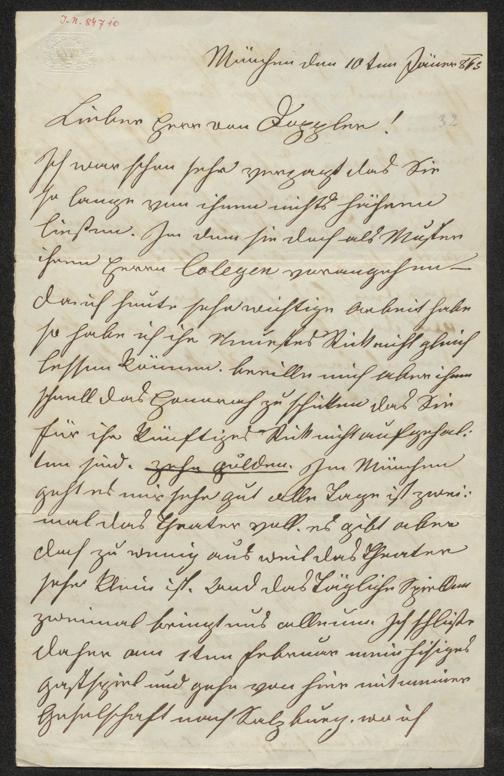 I.N. 84710
München den 10ten Jäner 863
32
Lieber Herr von Doppler!
Ich war schon sehr verzagt das Sie
so lange von ihnen nichts hühren
ließen. In dem sie doch als Muster
ihren Herrn Colegen vorangehen
da ich heute sehr wichtige arbeit habe
so habe ich ihr Neuestes Stük nicht gleich
lessen können. beeille mich aber ihnen
schnell das Honorah zu schiken das Sie
für ihr künftiges Stük nicht aufgehal:
ten sind. zehn gulden. In München
geht es mir sehr gut alle Tage ist zwei:
mal das Theater voll. es gibt aber
doch zu wenig aus weil das Theater
sehr klein ist. und das Tägliche Spiellen
zweimal bringt uns alle um. Ich schließe
daher am 1ten Februar mein hisiges
gastspiel und gehe von hier mit meiner
Geselschaft nach Salzburg. wo ich